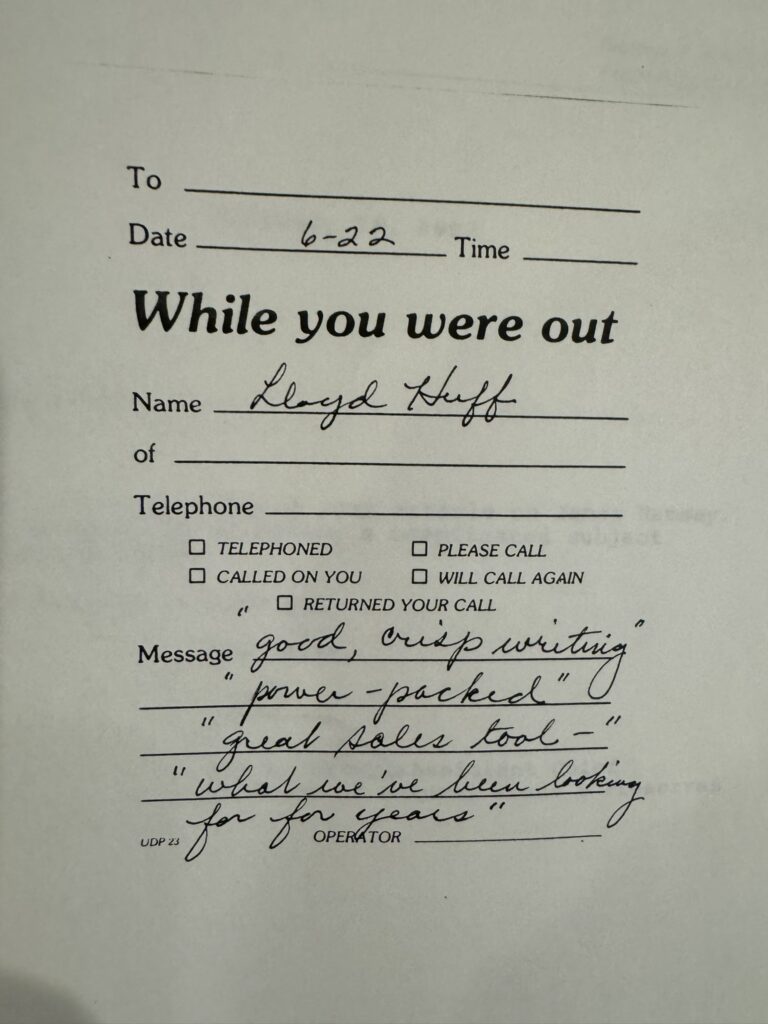 To
Date 6-22 Time
While you were out
Name Lloyd Huff
of
Telephone
☐ TELEPHONED ☐ PLEASE CALL
☐ CALLED ON YOU ☐ WILL CALL AGAIN
☐ RETURNED YOUR CALL
Message "good, crisp writing"
"power-packed"
"great sales tool-"
"what we've been looking
for for years"
UDP 23 OPERATOR